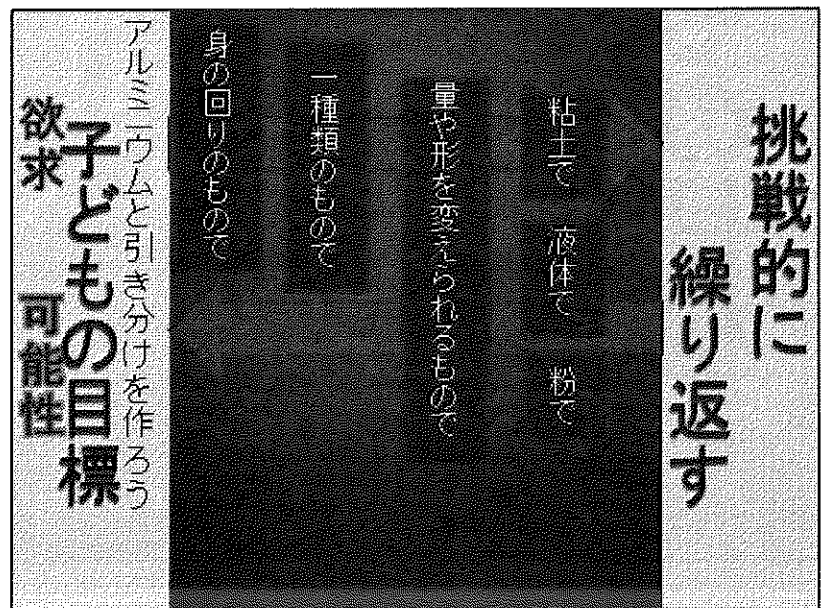 挑戦的に
繰り返す
粘土で 液体で 粉で
量や形を変えられるもので
一種類のもので
身の回りのもので
アルミニウムと引き分けを作ろう
子どもの目標
欲求 可能性